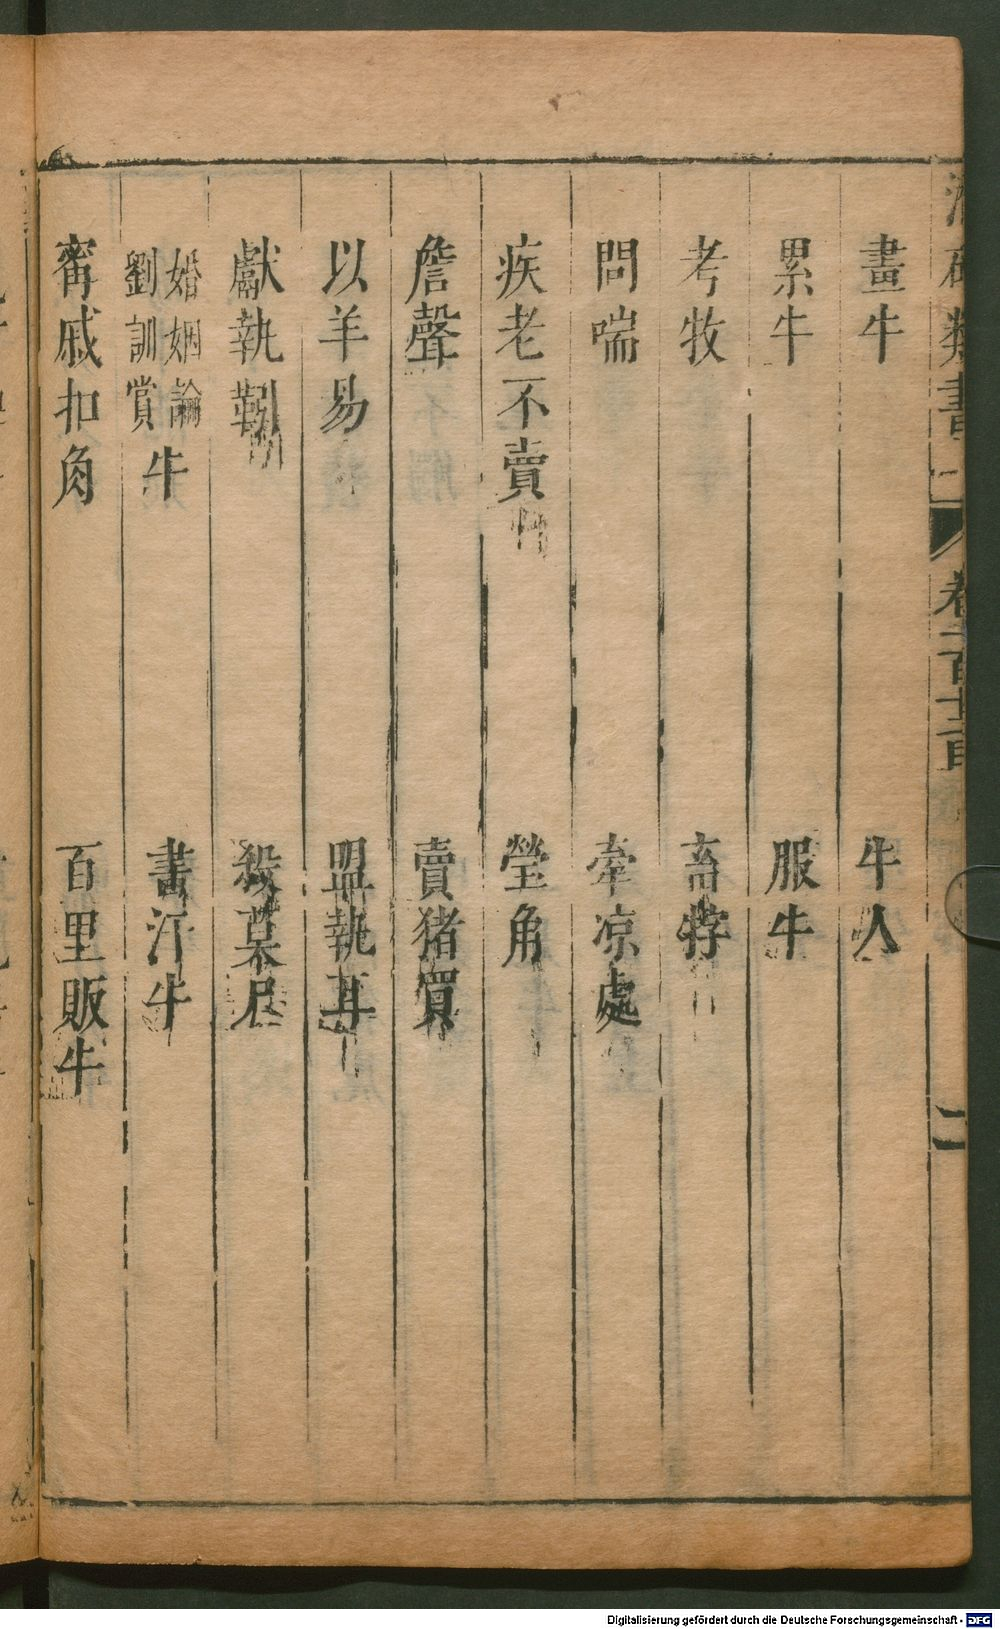 畫牛　牛人
累牛　服牛
考牧　畜牸
問喘　牽凉處
疾老不賣　瑩角
詹聲　賣猪買
以羊易　盟執耳
獻執靷　殺墓
婚姻論
劉訓賞
牛　畫汗牛
甯戚扣角　百里販牛
類書
二
Digitalisierung gefördert durch die Deutsche Forschungsgemeinschaft - DFG